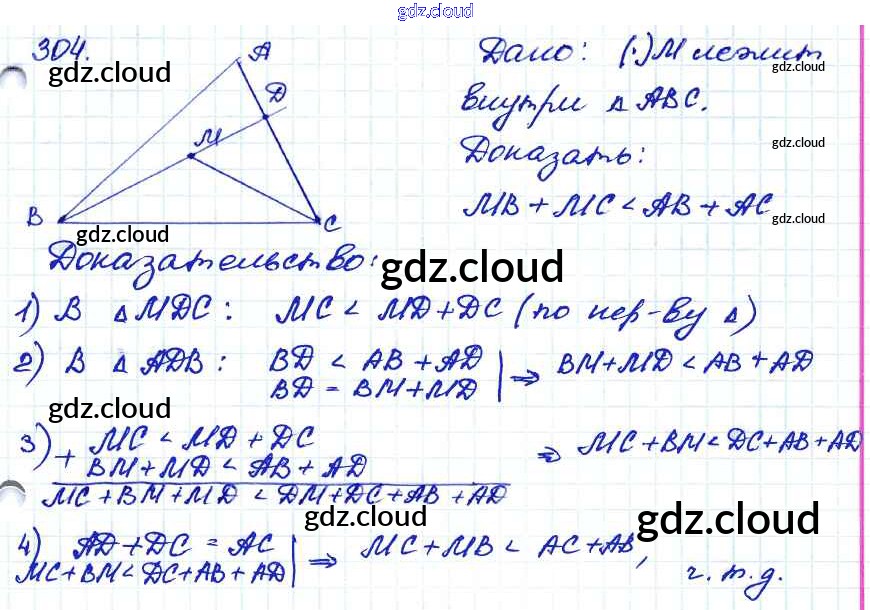 gdz.cloud
304.
gdz.cloud
A
D
M
B
C
gdz.cloud
Дано: (·) M лежит
gdz.cloud
внутри △ ABC.
Доказать:
gdz.cloud
MB + MC < AB + AC
gdz.cloud
Доказательство:
gdz.cloud
1) В △ MDC: MC < MD + DC (по нер-ву △)
2) В △ ADB: BD < AB + AD
BD = BM + MD
⇒ BM + MD < AB + AD
gdz.cloud
3) + MC < MD + DC
BM + MD < AB + AD
MC + BM + MD < DM + DC + AB + AD
⇒ MC + BM < DC + AB + AD
gdz.cloud
gdz.cloud
4) AD + DC = AC
MC + BM < DC + AB + AD
⇒ MC + MB < AC + AB,
ч. т. д.